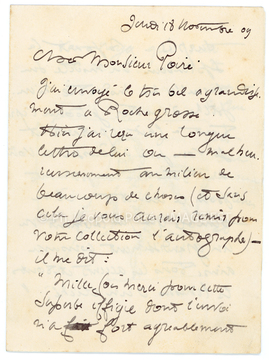 Jeudi 18 Novembre 09
Cher Monsieur Poiré
J'ai envoyé le très bel agrandisse
ment à Rochegrosse.
j'ai reçu une longue
lettre de lui où — malheu
reusement au milieu de
beaucoup de choses (et sans
cela je vous aurais remis pour
votre collection l'autographe) —
il me dit :
" Mille fois merci pour cette
superbe effigie dont l'envoi
m'a fort agréablement